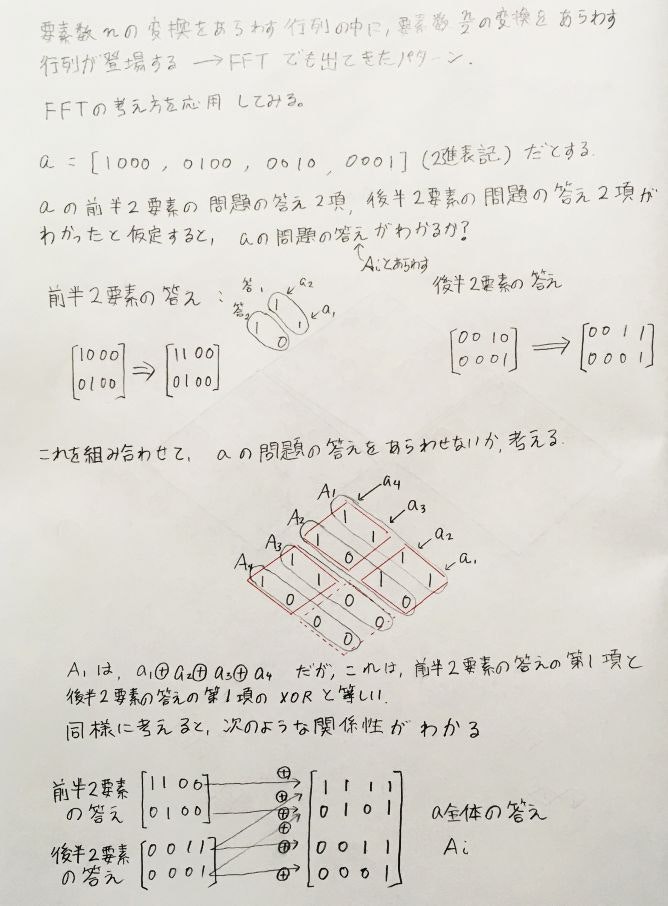 要素数nの変換をあらわす行列の中に,要素数n/2の変換をあらわす
行列が登場する → FFTでも出てきたパターン.
FFTの考え方を応用してみる。
a = [1000, 0100, 0010, 0001] (2進表記)だとする.
aの前半2要素の問題の答え2項, 後半2要素の問題の答え2項が
わかったと仮定すると, aの問題の答えがわかるか?
Aiとあらわす
前半2要素の答え :
答1 a2
答2 1 a1
1 1
0
後半2要素の答え
[1000 ⇒ [1100
0100] 0100]
[0010 ⇒ [0011
0001] 0001]
これを組み合わせて, aの問題の答えをあらわせないか,考える.
A1 a4
A2 1 a3
A3 1 1 a2
A4 1 0 1 a1
1 1 0 1 1
0 0 0
0 0
0
A1は, a1⊕a2⊕a3⊕a4 だが,これは,前半2要素の答えの第1項と
後半2要素の答えの第1項のXORと等しい.
同様に考えると,次のような関係性がわかる
前半2要素の答え [1100
0100]
後半2要素の答え [0011
0001]
⊕
⊕
⊕
⊕
⊕
⊕
[1111
0101
0011
0001]
a全体の答え
Ai